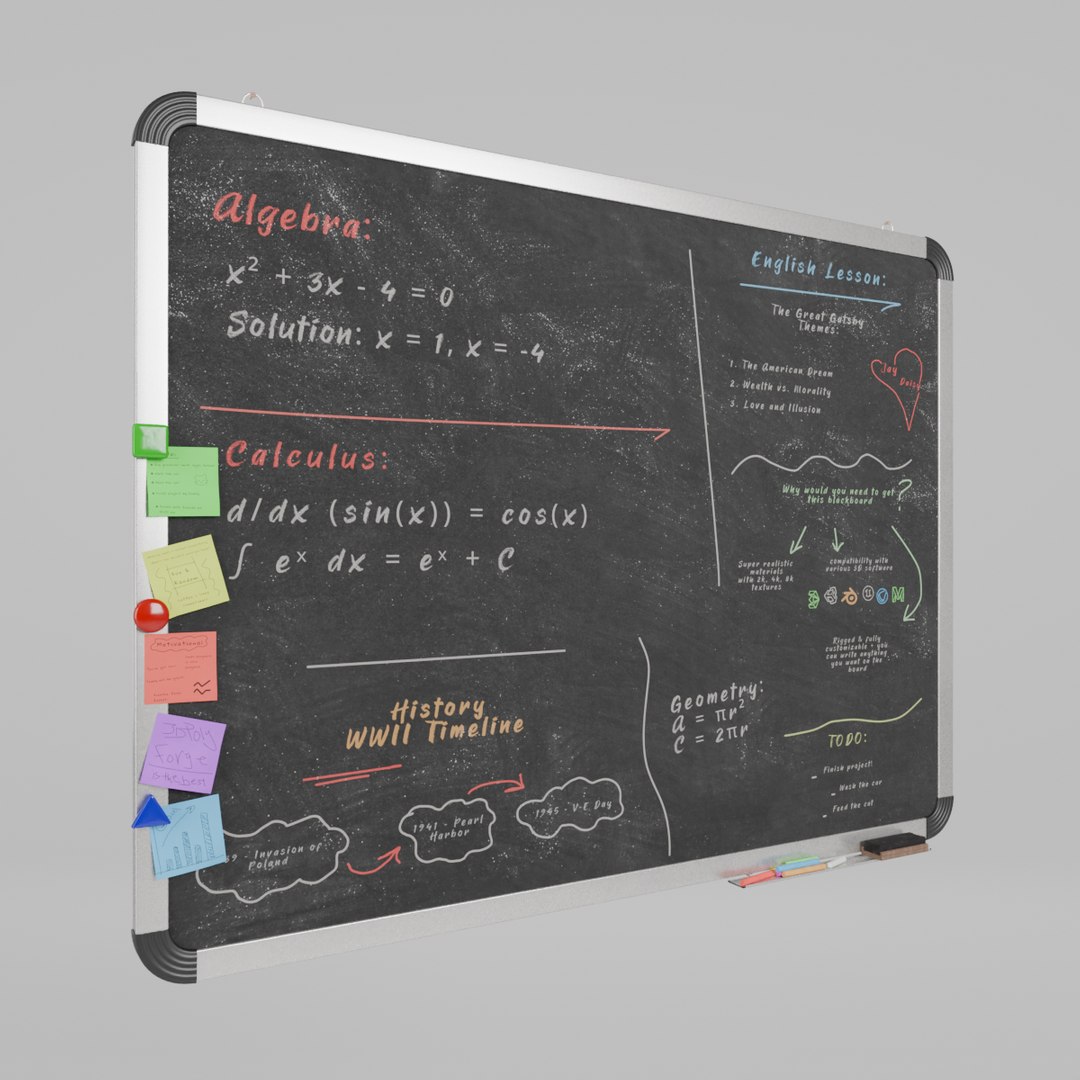 Algebra:
x² + 3x - 4 = 0
Solution: x = 1, x = -4
Calculus:
d/dx (sin(x)) = cos(x)
∫ eˣ dx = eˣ + C
History
WWII Timeline
39 - Invasion of
Poland
1941 - Pearl
Harbor
1945 - V-E Day
Geometry:
A = πr²
C = 2πr
English Lesson:
The Great Gatsby
Themes:
1. The American Dream
2. Wealth vs. Morality
3. Love and Illusion
Jay
Daisy
Why would you need to get
this blackboard ?
Super realistic
materials
with 2k, 4k, 8k
textures
compatibility with
various 3D software
Rigged & fully
customizable - you
can write anything
you want on the
board
TODO:
- Finish project!
- Wash the car
- Feed the cat
Motivational
3DPoly
Forge
is the best